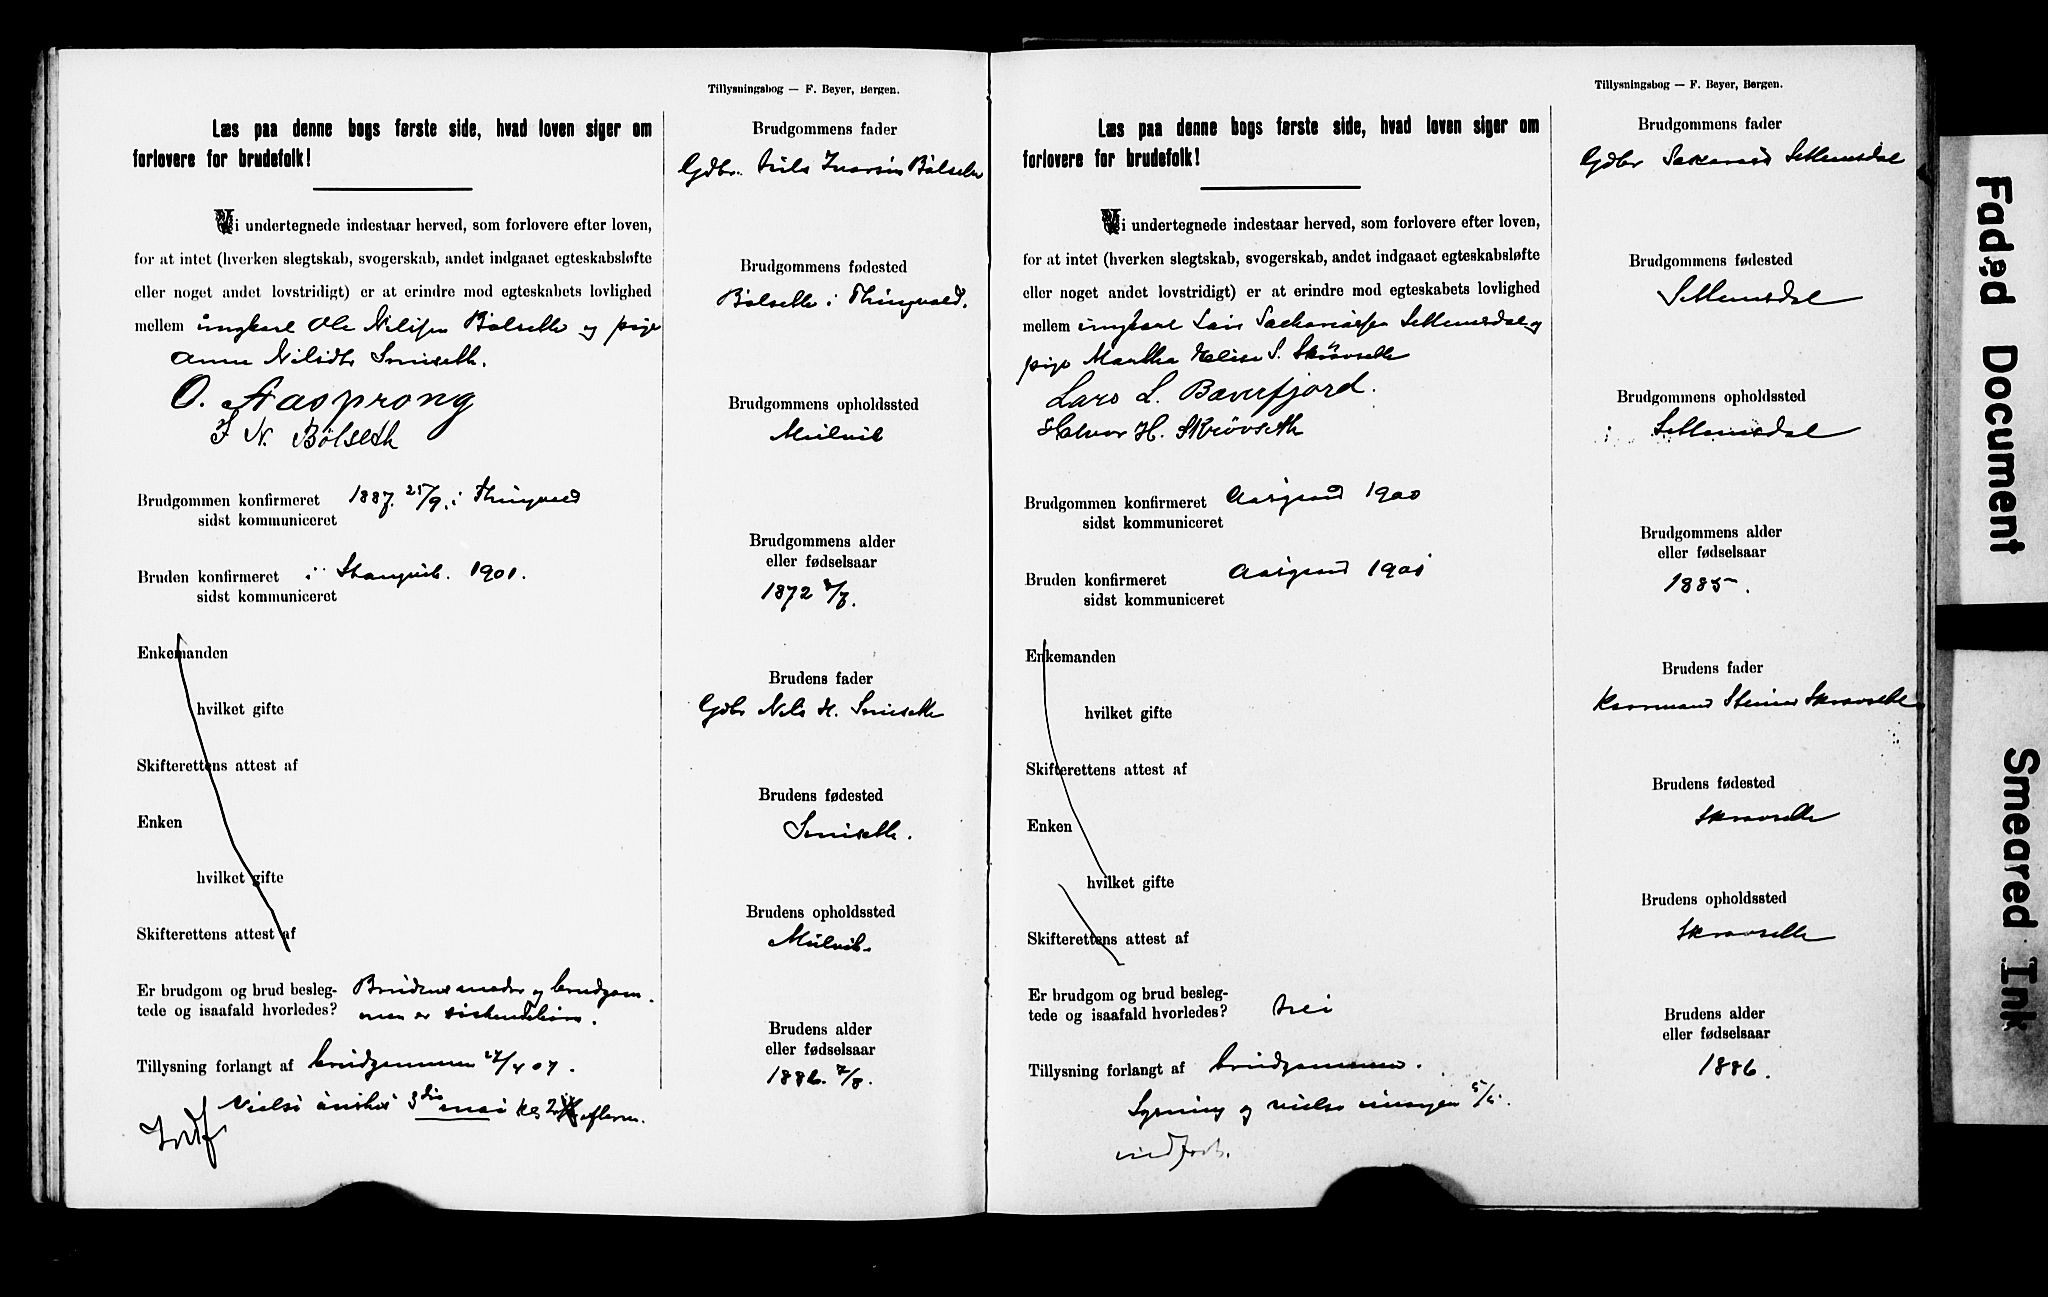 Tillysningsbog — F. Beyer, Bergen.
Læs paa denne bogs første side, hvad loven siger om
forlovere for brudefolk!
Vi undertegnede indestaar herved, som forlovere efter loven,
for at intet (hverken slegtskab, svogerskab, andet indgaaet egteskabsløfte
eller noget andet lovstridigt) er at erindre mod egteskabets lovlighed
mellem ungkarl Ole Nilsen Bølseth og pige
Anne Nilsdtr
O. Aasprong
I N. Bølseth
Brudgommen konfirmeret 1887 25/9 i Thingvold
sidst kommuniceret
Bruden konfirmeret i Stangvik. 1901.
sidst kommuniceret
Enkemanden
hvilket gifte
Skifterettens attest af
Enken
hvilket gifte
Skifterettens attest af
Er brudgom og brud besleg- Brudens moder og brudgom-
tede og isaafald hvorledes? men er søskendebørn.
Tillysning forlangt af brudgommen 27/4 07.
Vielse ønskes 3die mai kl 2 efterm.
Indf
Brudgommens fader
Gdbr. Nils Iversen Bølseth
Brudgommens fødested
Bølseth i Thingvold.
Brudgommens opholdssted
Mulvik
Brudgommens alder
eller fødselsaar
1872
Brudens fader
Gdbr Nils H.
Brudens fødested
Brudens opholdssted
Mulvik
Brudens alder
eller fødselsaar
1886. 7/8.
Tillysningsbog — F. Beyer, Bergen.
Læs paa denne bogs første side, hvad loven siger om
forlovere for brudefolk!
Vi undertegnede indestaar herved, som forlovere efter loven,
for at intet (hverken slegtskab, svogerskab, andet indgaaet egteskabsløfte
eller noget andet lovstridigt) er at erindre mod egteskabets lovlighed
mellem ungkarl Lars Sakariassen Settemsdal og
pige Martha Elise S. Skrøvseth
Lars L. Bæverfjord.
Halvor H. Skrøvseth
Brudgommen konfirmeret Aasgaard 1900
sidst kommuniceret
Bruden konfirmeret Aasgaard 1901
sidst kommuniceret
Enkemanden
hvilket gifte
Skifterettens attest af
Enken
hvilket gifte
Skifterettens attest af
Er brudgom og brud besleg-
tede og isaafald hvorledes? Nei
Tillysning forlangt af brudgommen.
Lysning og vielse imorgen 5/5.
indført.
Brudgommens fader
Gdbr Sakarias Settemsdal
Brudgommens fødested
Settemsdal
Brudgommens opholdssted
Settemsdal
Brudgommens alder
eller fødselsaar
1885.
Brudens fader
Kaarmand Steinar Skrøvseth
Brudens fødested
Skrøvseth
Brudens opholdssted
Skrøvseth
Brudens alder
eller fødselsaar
1886.
Faded Document
Smeared Ink